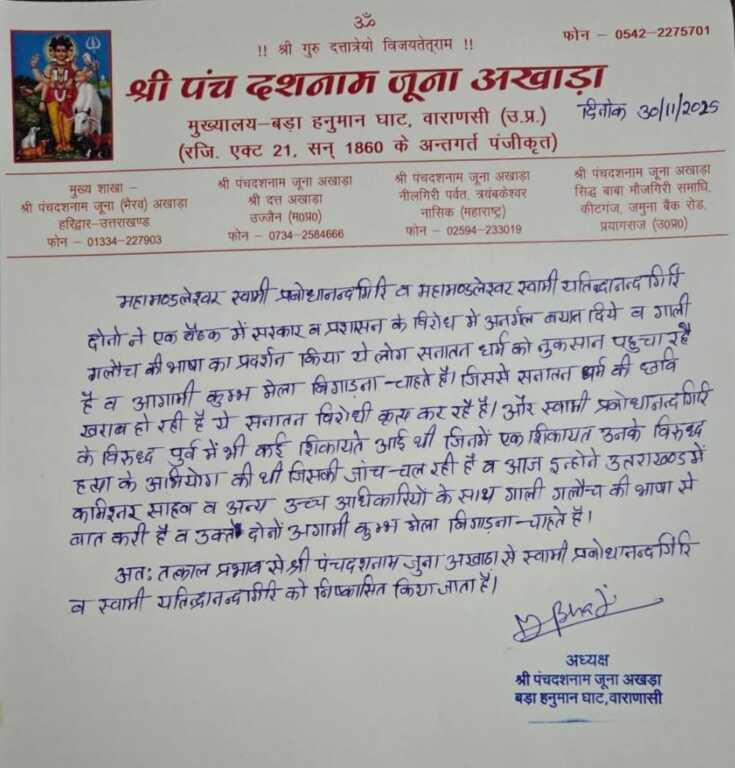 ॐ
!! श्री गुरु दत्तात्रेयो विजयतेतराम !!
फोन – 0542–2275701
श्री पंच दशनाम जूना अखाड़ा
मुख्यालय–बड़ा हनुमान घाट, वाराणसी (उ.प्र.)
दिनांक 30/11/2025
(रजि. एक्ट 21, सन् 1860 के अन्तगर्त पंजीकृत)
मुख्य शाखा –
श्री पंचदशनाम जूना (भैरव) अखाड़ा
हरिद्वार–उत्तराखण्ड
फोन – 01334–227903
श्री पंचदशनाम जूना अखाड़ा
श्री दत्त अखाड़ा
उज्जैन (म०प्र०)
फोन – 0734–2584666
श्री पंचदशनाम जूना अखाड़ा
नीलगिरी पर्वत, त्रयंबकेश्वर
नासिक (महाराष्ट्र)
फोन – 02594–233019
श्री पंचदशनाम जूना अखाड़ा
सिद्ध बाबा मौजगिरी समाधि,
कीटगंज, जमुना बैंक रोड,
प्रयागराज (उ०प्र०)
महामण्डलेश्वर स्वामी प्रबोधानन्द गिरि व महामण्डलेश्वर स्वामी यतिन्द्रानन्द गिरि
दोनो ने एक बैठक में सरकार व प्रशासन के विरोध मे अनर्गल बयान दिये व गाली
गलौच की भाषा का प्रदर्शन किया ये लोग सनातन धर्म को नुकसान पहुचा रहै
है व आगामी कुम्भ मेला बिगाडना चाहते है। जिससे सनातन धर्म की छवि
खराब हो रही है ये सनातन विरोधी कृत्य कर रहै है। और स्वामी प्रबोधानन्द गिरि
के विरूध्द पूर्व में भी कई शिकायते आई थी जिनमें एक शिकायत उनके विरूध्द
हत्या के अभियोग की थी जिसकी जांच चल रही है व आज इन्होने उत्तराखण्ड में
कमिश्नर साहब व अन्य उच्च अधिकारियो के साथ गाली गलौच की भाषा से
बात करी है व उक्त दोनों अगामी कुम्भ मेला बिगाडना चाहते है।
अतः तत्काल प्रभाव से श्री पंचदशनाम जुना अखाडा से स्वामी प्रबोधानन्द गिरि
व स्वामी यतिन्द्रानन्द गिरि को निष्कासित किया जाता है।
अध्यक्ष
श्री पंचदशनाम जूना अखड़ा
बड़ा हनुमान घाट,वाराणासी